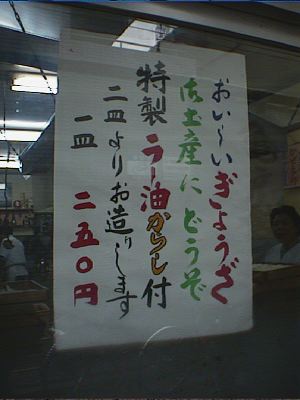 おい〜いぎょうざ
お土産にどうぞ
特製ラー油からし付
二皿よりお造りします
一皿 二五〇円